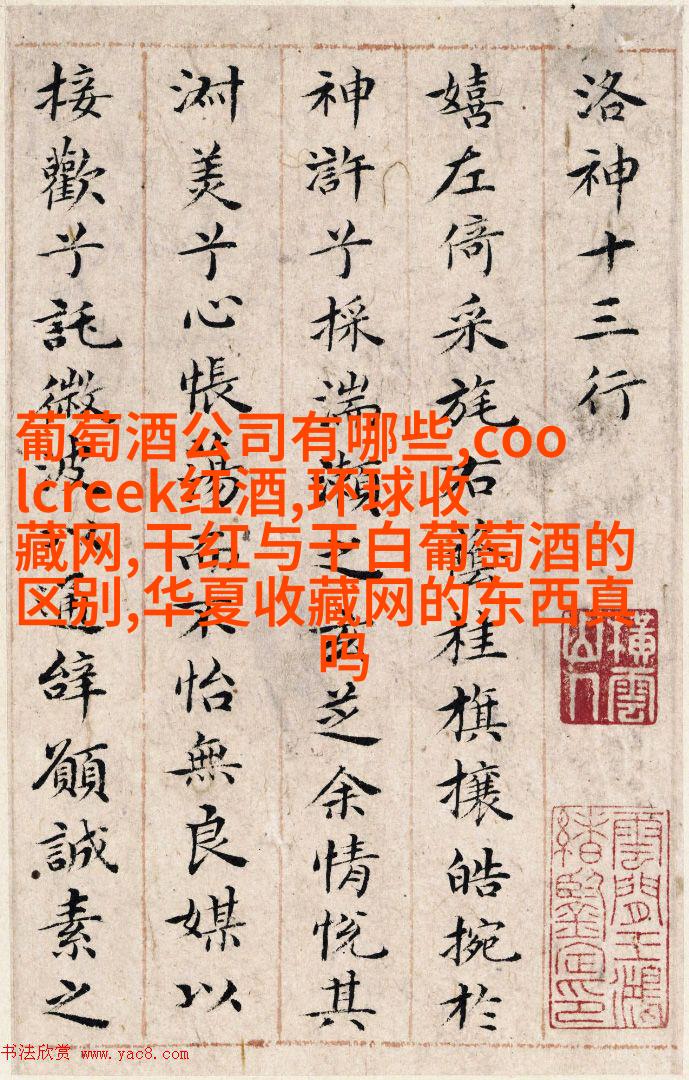 洛神十三行
嬉左倚采旄右蔭桂旗攘皓捥於
神滸兮採湍瀨之玄芝余情悅其
淑美兮心悵蕩而不怡無良媒以
接歡兮託微波以通辭願誠素之
橫雲山人
雲間王鴻緒鑒定印
葡萄酒公司有哪些,coo
lcreek红酒,环球收
藏网,干红与干白葡萄酒的
区别,华夏收藏网的东西真
吗
书法欣赏 www.yac8.com